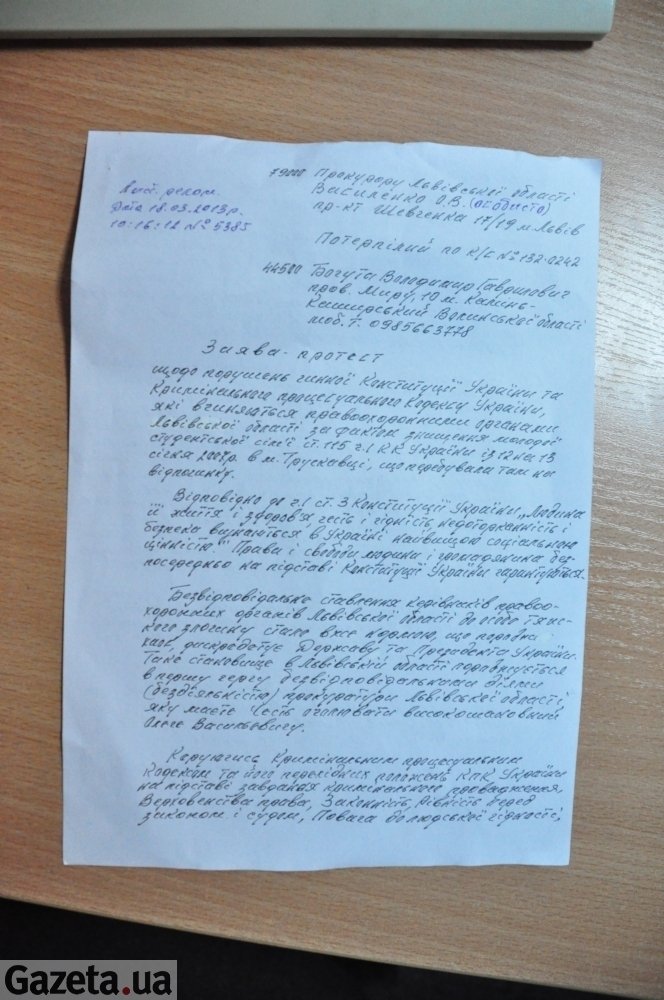 79000 Прокурору Львівської області
Василенко О.В. (особисто)
пр-кт Шевченка 17/19 м. Львів
Лист. реком.
дата 18.03.2013р.
10:16:12 № 5385
Потерпілий по К/С № 132-0242
44500 Богута Володимир Гаврилович
пров. Миру, 10 м. Камінь-
Каширський Волинської області
моб. т. 0985663778
Заява - протест
щодо порушень чинної Конституції України та
Кримінального процесуального Кодексу України,
які вчиняються правоохоронними органами
Львівської області за фактом знищення молодої
студентської сім'ї ст. 115 ч.1 КК України із 12 на 13
січня 2007р. в м. Трускавці, що перебували там на
відпочинку.
Відповідно до ч.1 ст. 3 Конституції України „Людина
її життя і здоров'я честь і гідність недоторканність і
безпека визнаються в Україні найвищою соціальною
цінністю" Права і свободи людини і громадянина без-
посередньо на підставі Конституції України гарантуються.
Безвідповідальне ставлення керівників правоо-
хоронних органів Львівської області до особо тяжс-
кого злочину стало вже нормою, що
дискредитує Державу та Президента України.
Таке становище в Львівській області
в першу чергу безвідповідальними діями
(бездіяльністю) прокуратури Львівської області,
яку маєте честь очолювати високошановний
Олеге Васильевичу.
Керуючись Кримінальним процесуальним
Кодексом та його перехідних положень КПК України
на підставі завдання кримінального провадження,
Верховенства права, Законність, Рівність перед
законом і судом, Повага до людської гідності,
Gazeta.ua